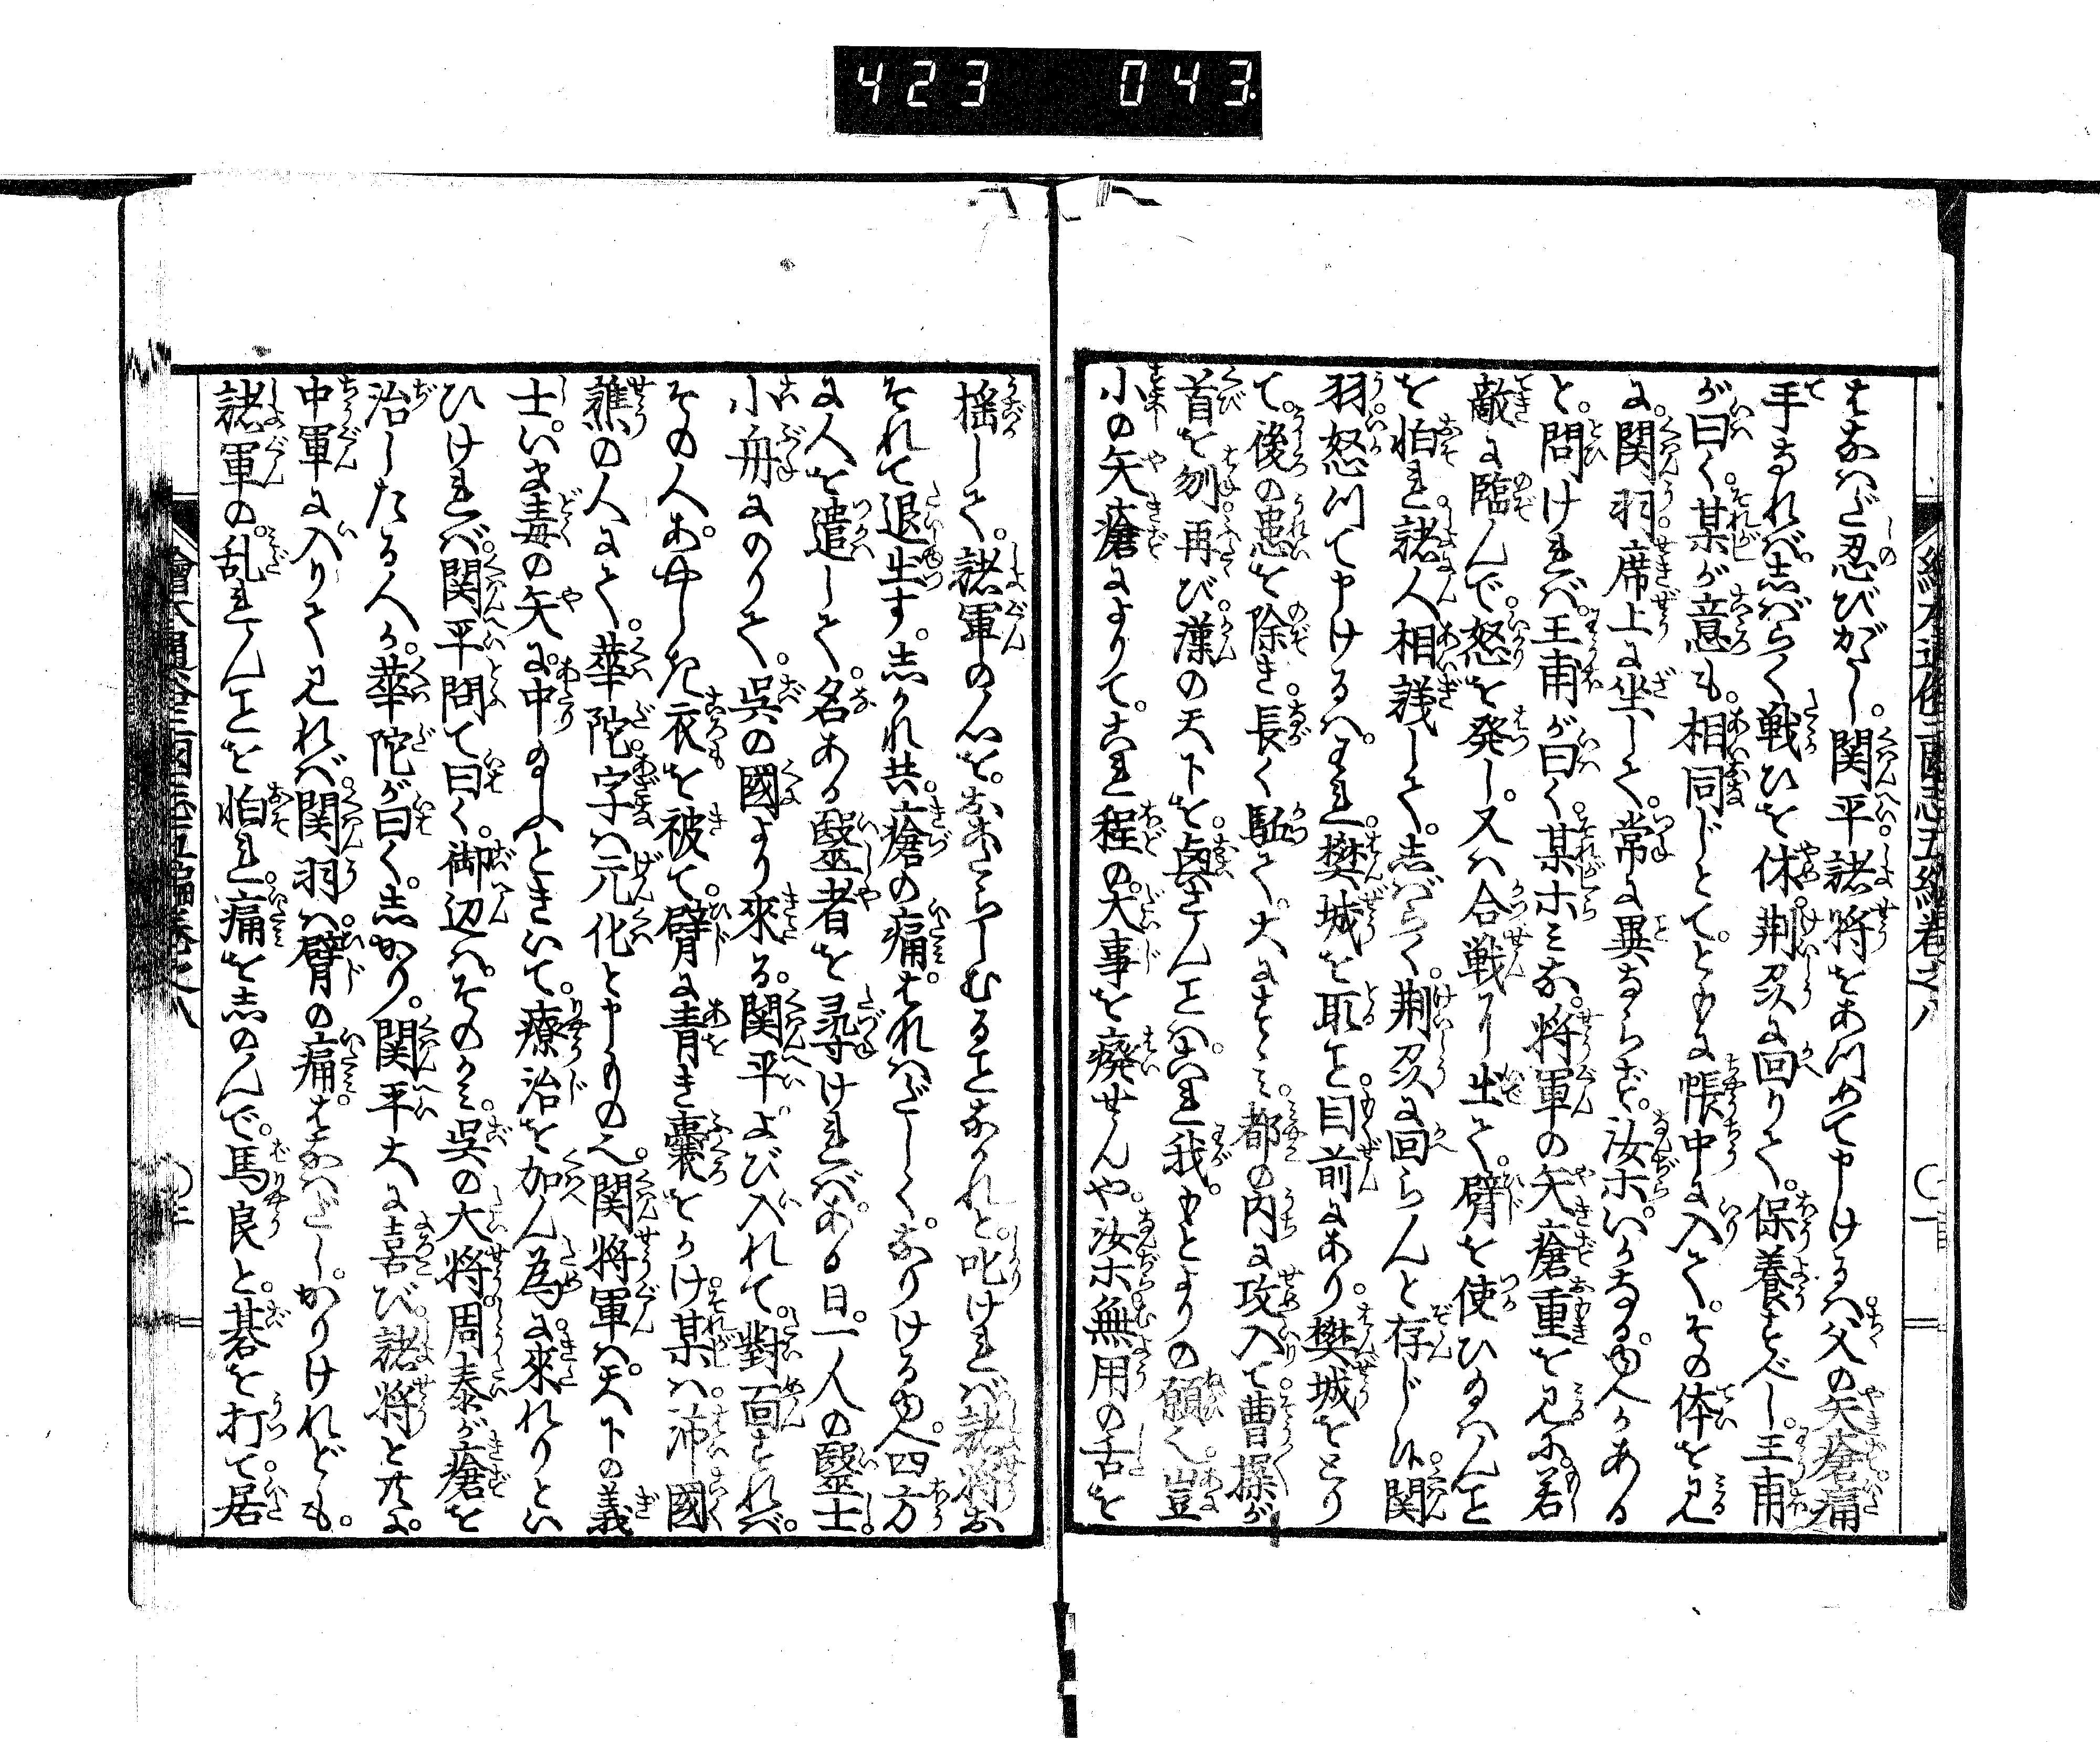 423 043
繪本通俗三國志五編卷之八
はなはだ忍びがたし。関平諸将をあつめて申けるハ父の矢瘡痛
手なれバ。志ばらく戦ひを休。荆州に回りて。保養すべし。王甫
が曰く。某が意も。相同じとて。ともに帳中に入て。その体を見
に。関羽。席上に坐して。常に異ならず。汝ホ。いかなる。ゆへかある
と。問けれバ。王甫が曰く。某ホミな。将軍の矢瘡重を見に。若
敵に臨んで。怒を発し。又ハ合戦に出て。臂を使ひ給ハんこと
を怕れ。諸人相議して。志ばらく。荆州に回らんと存じ候。関
羽。怒つて申けるハ。われ樊城を取こと。目前にあり。樊城をとり
て。後の患を除き。長く駈て。大にすゝミ。都の内に攻入て曹操が
首を刎。再び漢の天下を。興さんこと。これ我。もとよりの願也。豈
小の矢瘡によりて。これ程の大事を廃せんや。汝ホ無用の舌を
揺して。諸軍の心を。おこたらしむることなかれと。叱けれバ諸将お
それて退出す。志かれ共。瘡の痛。はなはだしく。なりけるゆへ。四方
に人を遣して。名ある醫者を尋けれバ。ある日。一人の醫士。
小舟にのりて。呉の國より来る。関平よび入れて。對面すれバ。
その人。あやしき衣を被て。臂に青き嚢をかけ。某ハ沛國
譙の人にて。華陀字ハ元化と申もの也。関将軍ハ。天下の義
士。いま毒の矢に。中り給ふときいて。療治を加ん為に。来れりとい
ひけれバ。関平問て曰く。御辺ハ。そのかミ。呉の大将。周泰が瘡を
治したる人か。華陀が曰く。志かり。関平大に喜び。諸将と共に。
中軍に入りて見れバ。関羽ハ。臂の痛。はなはだしかりけれども。
諸軍の。乱れんことを怕れ。痛を志のんで。馬良と。碁を打て。居
繪本通俗三國志五編卷之八